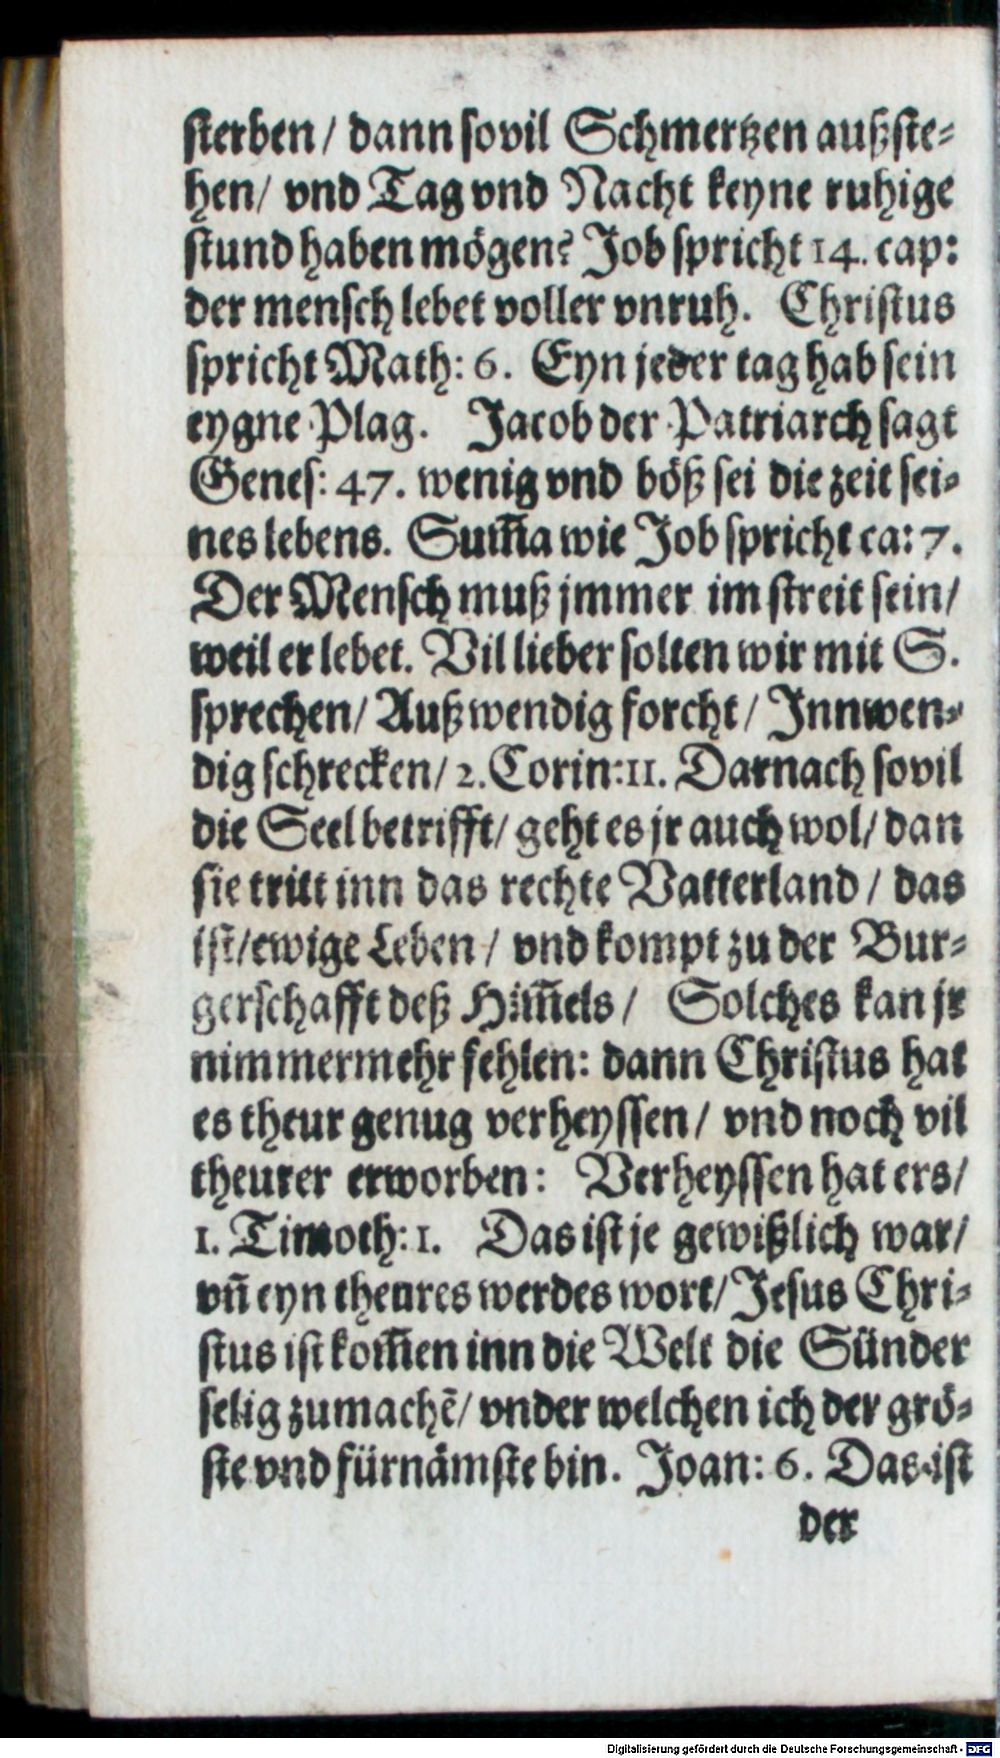 sterben / dann sovil Schmertzen außste-
hen / vnd Tag vnd Nacht keyne ruhige
stund haben mögen? Job spricht 14. cap:
der mensch lebet voller vnruh. Christus
spricht Math: 6. Eyn jeder tag hab sein
eygne Plag. Jacob der Patriarch sagt
Genes: 47. wenig vnd böß sei die zeit sei-
nes lebens. Sum̃a wie Job spricht ca: 7.
Der Mensch muß jmmer im streit sein /
weil er lebet. Vil lieber solten wir mit S.
sprechen / Außwendig forcht / Innwen-
dig schrecken / 2. Corin: 11. Darnach sovil
die Seel betrifft / geht es jr auch wol / dan
sie tritt inn das rechte Vatterland / das
ist / ewige Leben / vnd kompt zu der Bur-
gerschafft deß Him̃els / Solches kan jr
nimmermehr fehlen: dann Christus hat
es theur genug verheyssen / vnd noch vil
theurer erworben: Verheyssen hat ers /
1. Timoth: 1. Das ist je gewißlich war /
vñ eyn theures werdes wort / Jesus Chri-
stus ist kom̃en inn die Welt die Sünder
selig zumachẽ / vnder welchen ich der grö-
ste vnd fürnämste bin. Joan: 6. Das ist
der
Digitalisierung gefördert durch die Deutsche Forschungsgemeinschaft - DFG